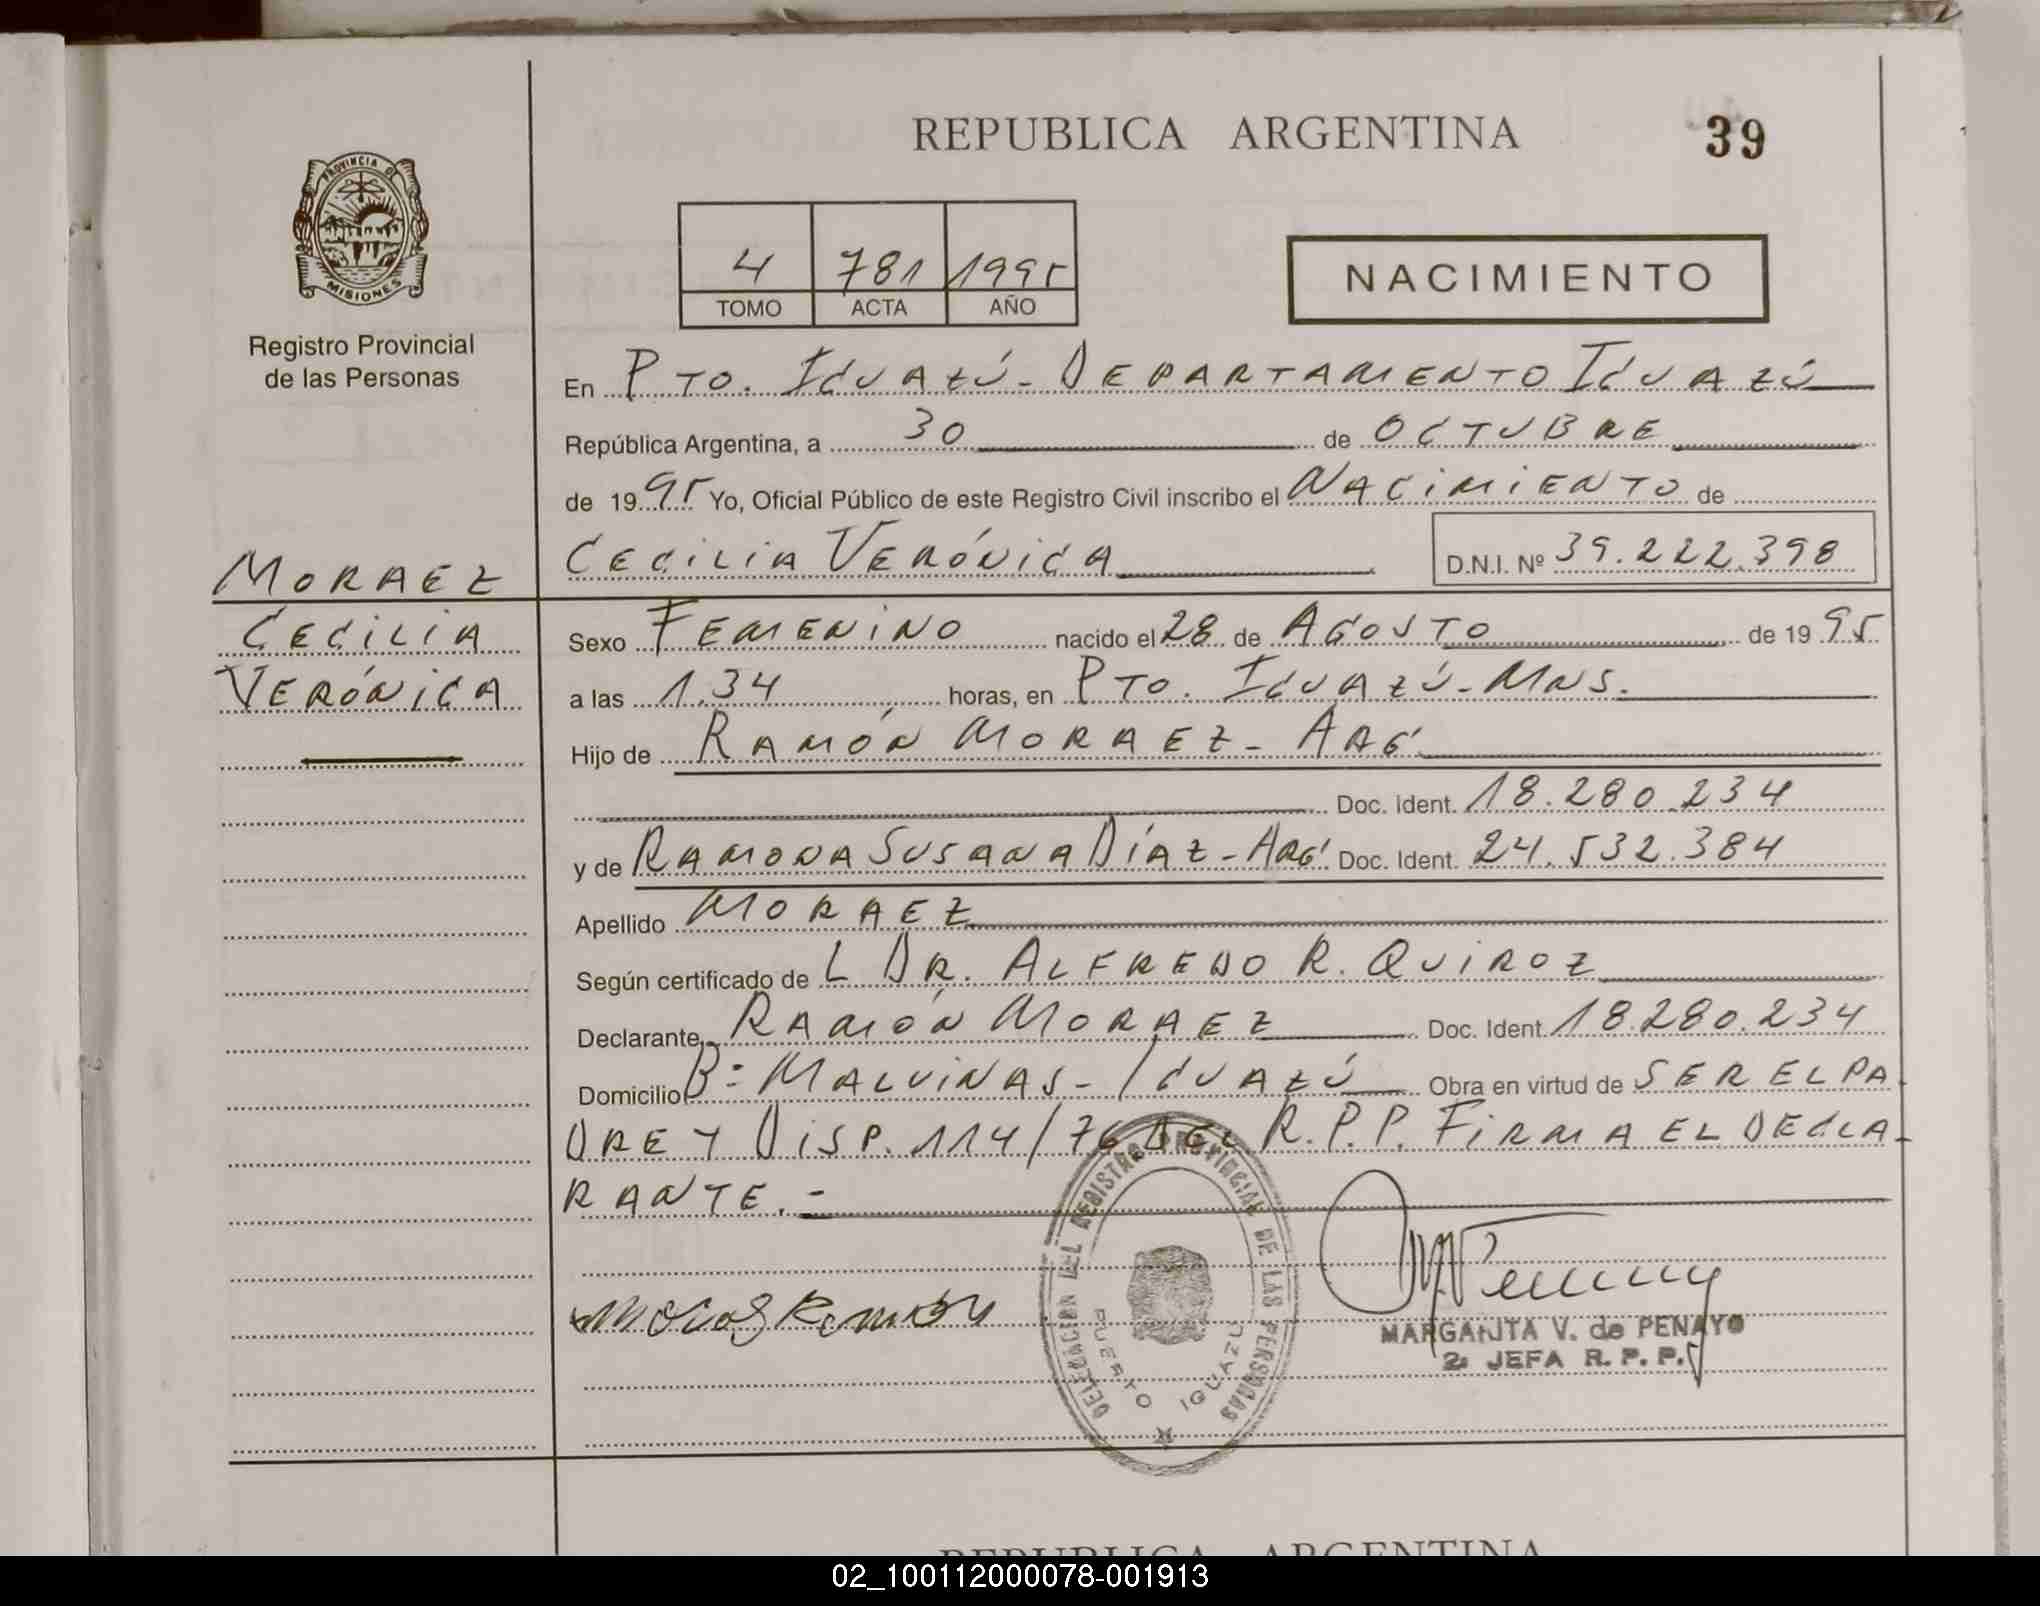 REPUBLICA ARGENTINA
39
PROVINCIA DE
MISIONES
Registro Provincial
de las Personas
4 781 1995
TOMO ACTA AÑO
NACIMIENTO
En PTO. IGUAZÚ - DEPARTAMENTO IGUAZÚ
República Argentina, a 30 de OCTUBRE
de 1995 Yo, Oficial Público de este Registro Civil inscribo el NACIMIENTO de
CECILIA VERÓNICA D.N.I. Nº 39.222.398
MORAEZ
CECILIA
VERÓNICA
Sexo FEMENINO nacido el 28 de AGOSTO de 1995
a las 1,34 horas, en PTO. IGUAZÚ - MNS.
Hijo de RAMÓN MORAEZ - ARG.
Doc. Ident. 18.280.234
y de RAMONA SUSANA DÍAZ - ARG. Doc. Ident. 24.532.384
Apellido MORAEZ
Según certificado de L DR. ALFREDO R. QUIROZ
Declarante RAMÓN MORAEZ Doc. Ident. 18.280.234
Domicilio B: MALVINAS - IGUAZÚ Obra en virtud de SER EL PA
DRE Y DISP. 114/76 DEL R.P.P. FIRMA EL DECLA-
RANTE.-
DELEGACION DEL REGISTRO PROVINCIAL DE LAS PERSONAS
PUERTO IGUAZU
MARGARITA V. de PENAYO
2ª JEFA R. P. P.
REPUBLICA ARGENTINA
02_100112000078-001913